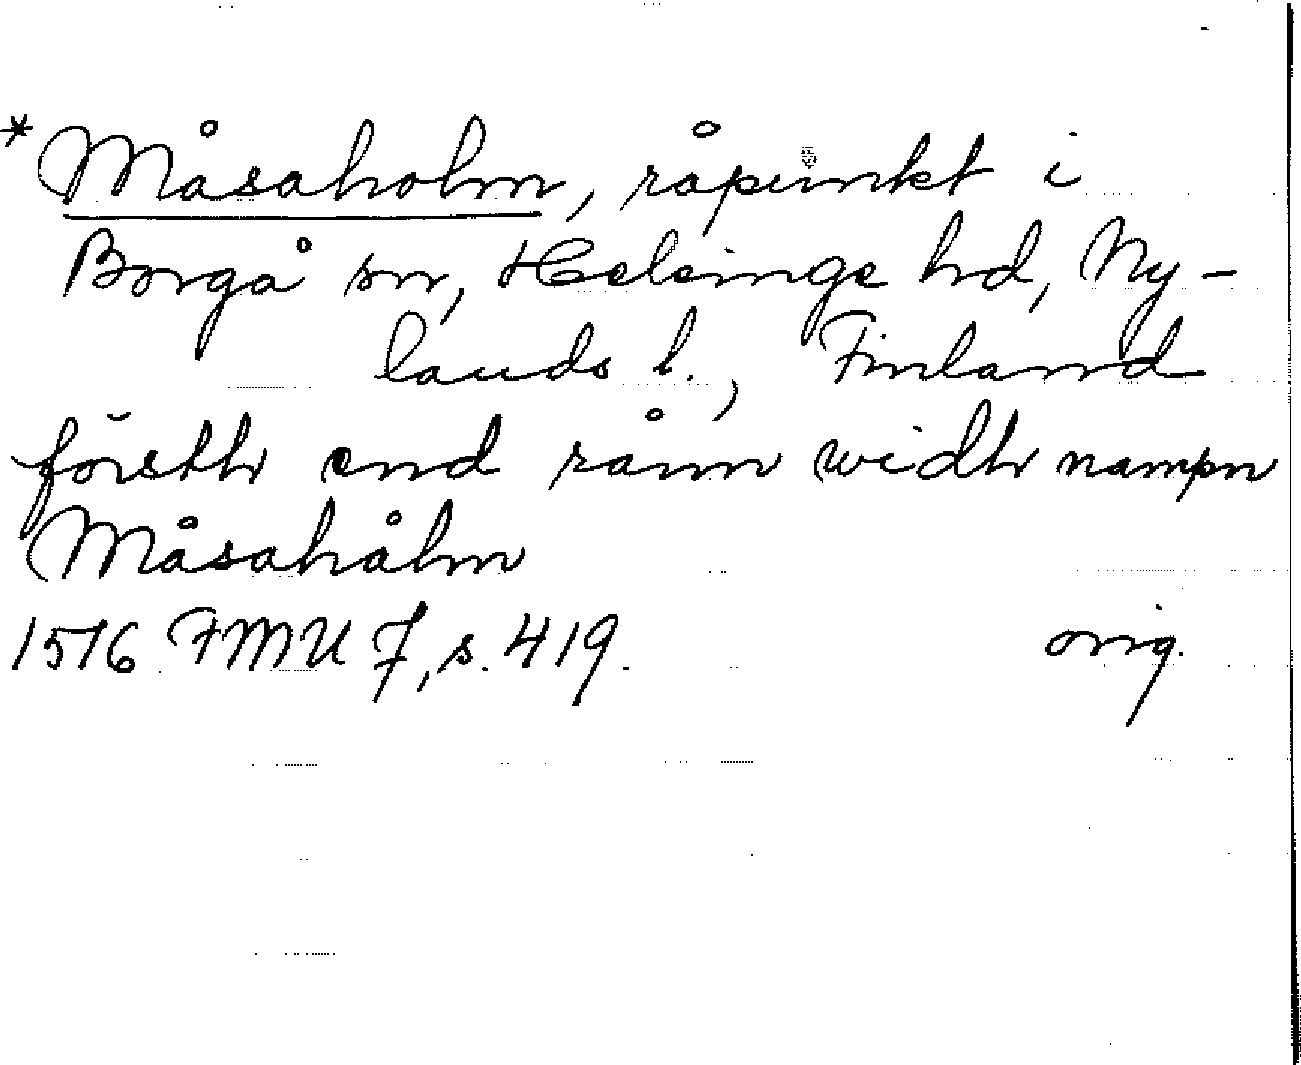 *Måsaholm, råpunkt i
Borgå sn, Helsinge hd, Ny-
lands l., Finland
försth end rånn widh nampn
Måsahålm
1516 FMU 7, s. 419. orig.